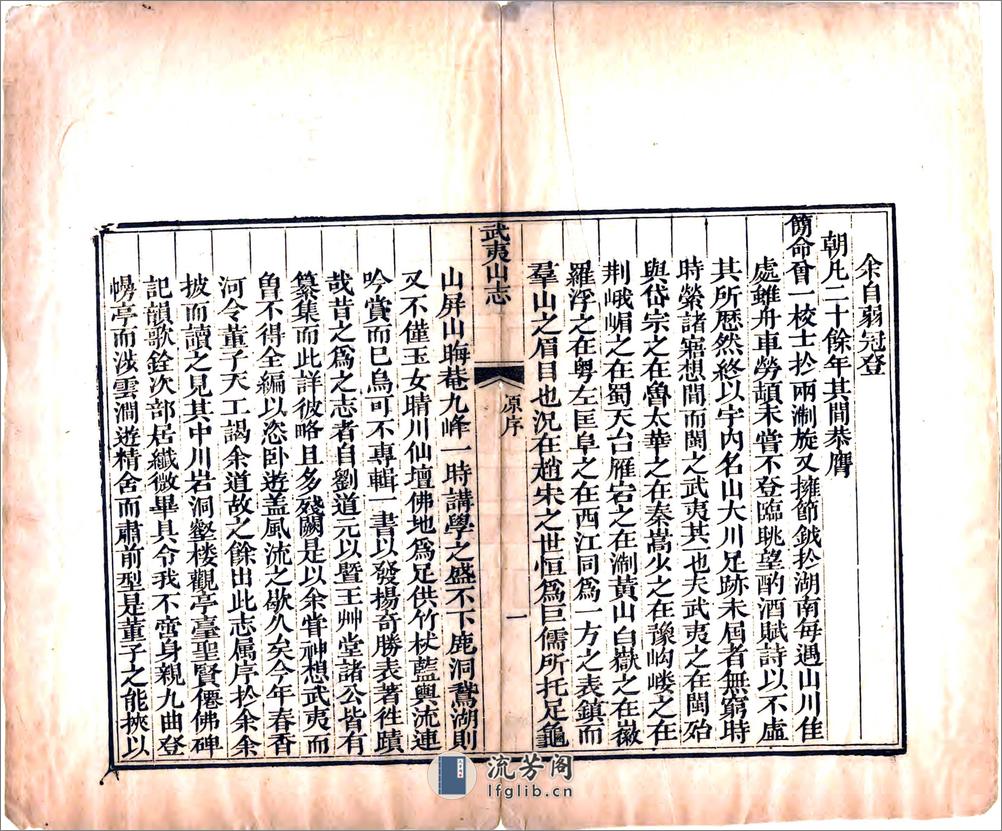 余自弱冠登
朝凡二十餘年其間恭膺
簡命曾一校士扵兩淛旋又擁節鉞扵湖南每遇山川佳
處雖舟車勞頓未嘗不登臨眺望酌酒賦詩以不虛
其所歷然終以宇內名山大川足跡未屆者無窮時
時縈諸寤想間而閩之武夷其一也夫武夷之在閩殆
與岱宗之在魯太華之在秦嵩少之在豫岣嶁之在
荆峨嵋之在蜀天台雁宕之在淛黃山白嶽之在徽
羅浮之在粵左匡阜之在西江同爲一方之表鎮而
羣山之眉目也況在趙宋之世恒爲巨儒所托足龜
武夷山志
原序
一
山屏山晦菴九峰一時講學之盛不下鹿洞鵞湖則
又不僅玉女晴川仙壇佛地爲足供竹杖藍輿流連
吟賞而已烏可不專輯一書以發揚奇勝表著徃蹟
哉昔之爲之志者自劉道元以暨王艸堂諸公皆有
纂集而此詳彼略且多殘闕是以余嘗神想武夷而
曾不得全編以恣卧遊盖風流之歇久矣今年春香
河令董子天工謁余道故之餘出此志属序扵余余
披而讀之見其中川岩洞壑楼觀亭臺聖賢僊佛碑
記韻歌銓次部居纖微畢具令我不啻身親九曲登
幔亭而泝雲澗遊精舍而肅前型是董子之能挾以
流芳阁
lfglib.cn